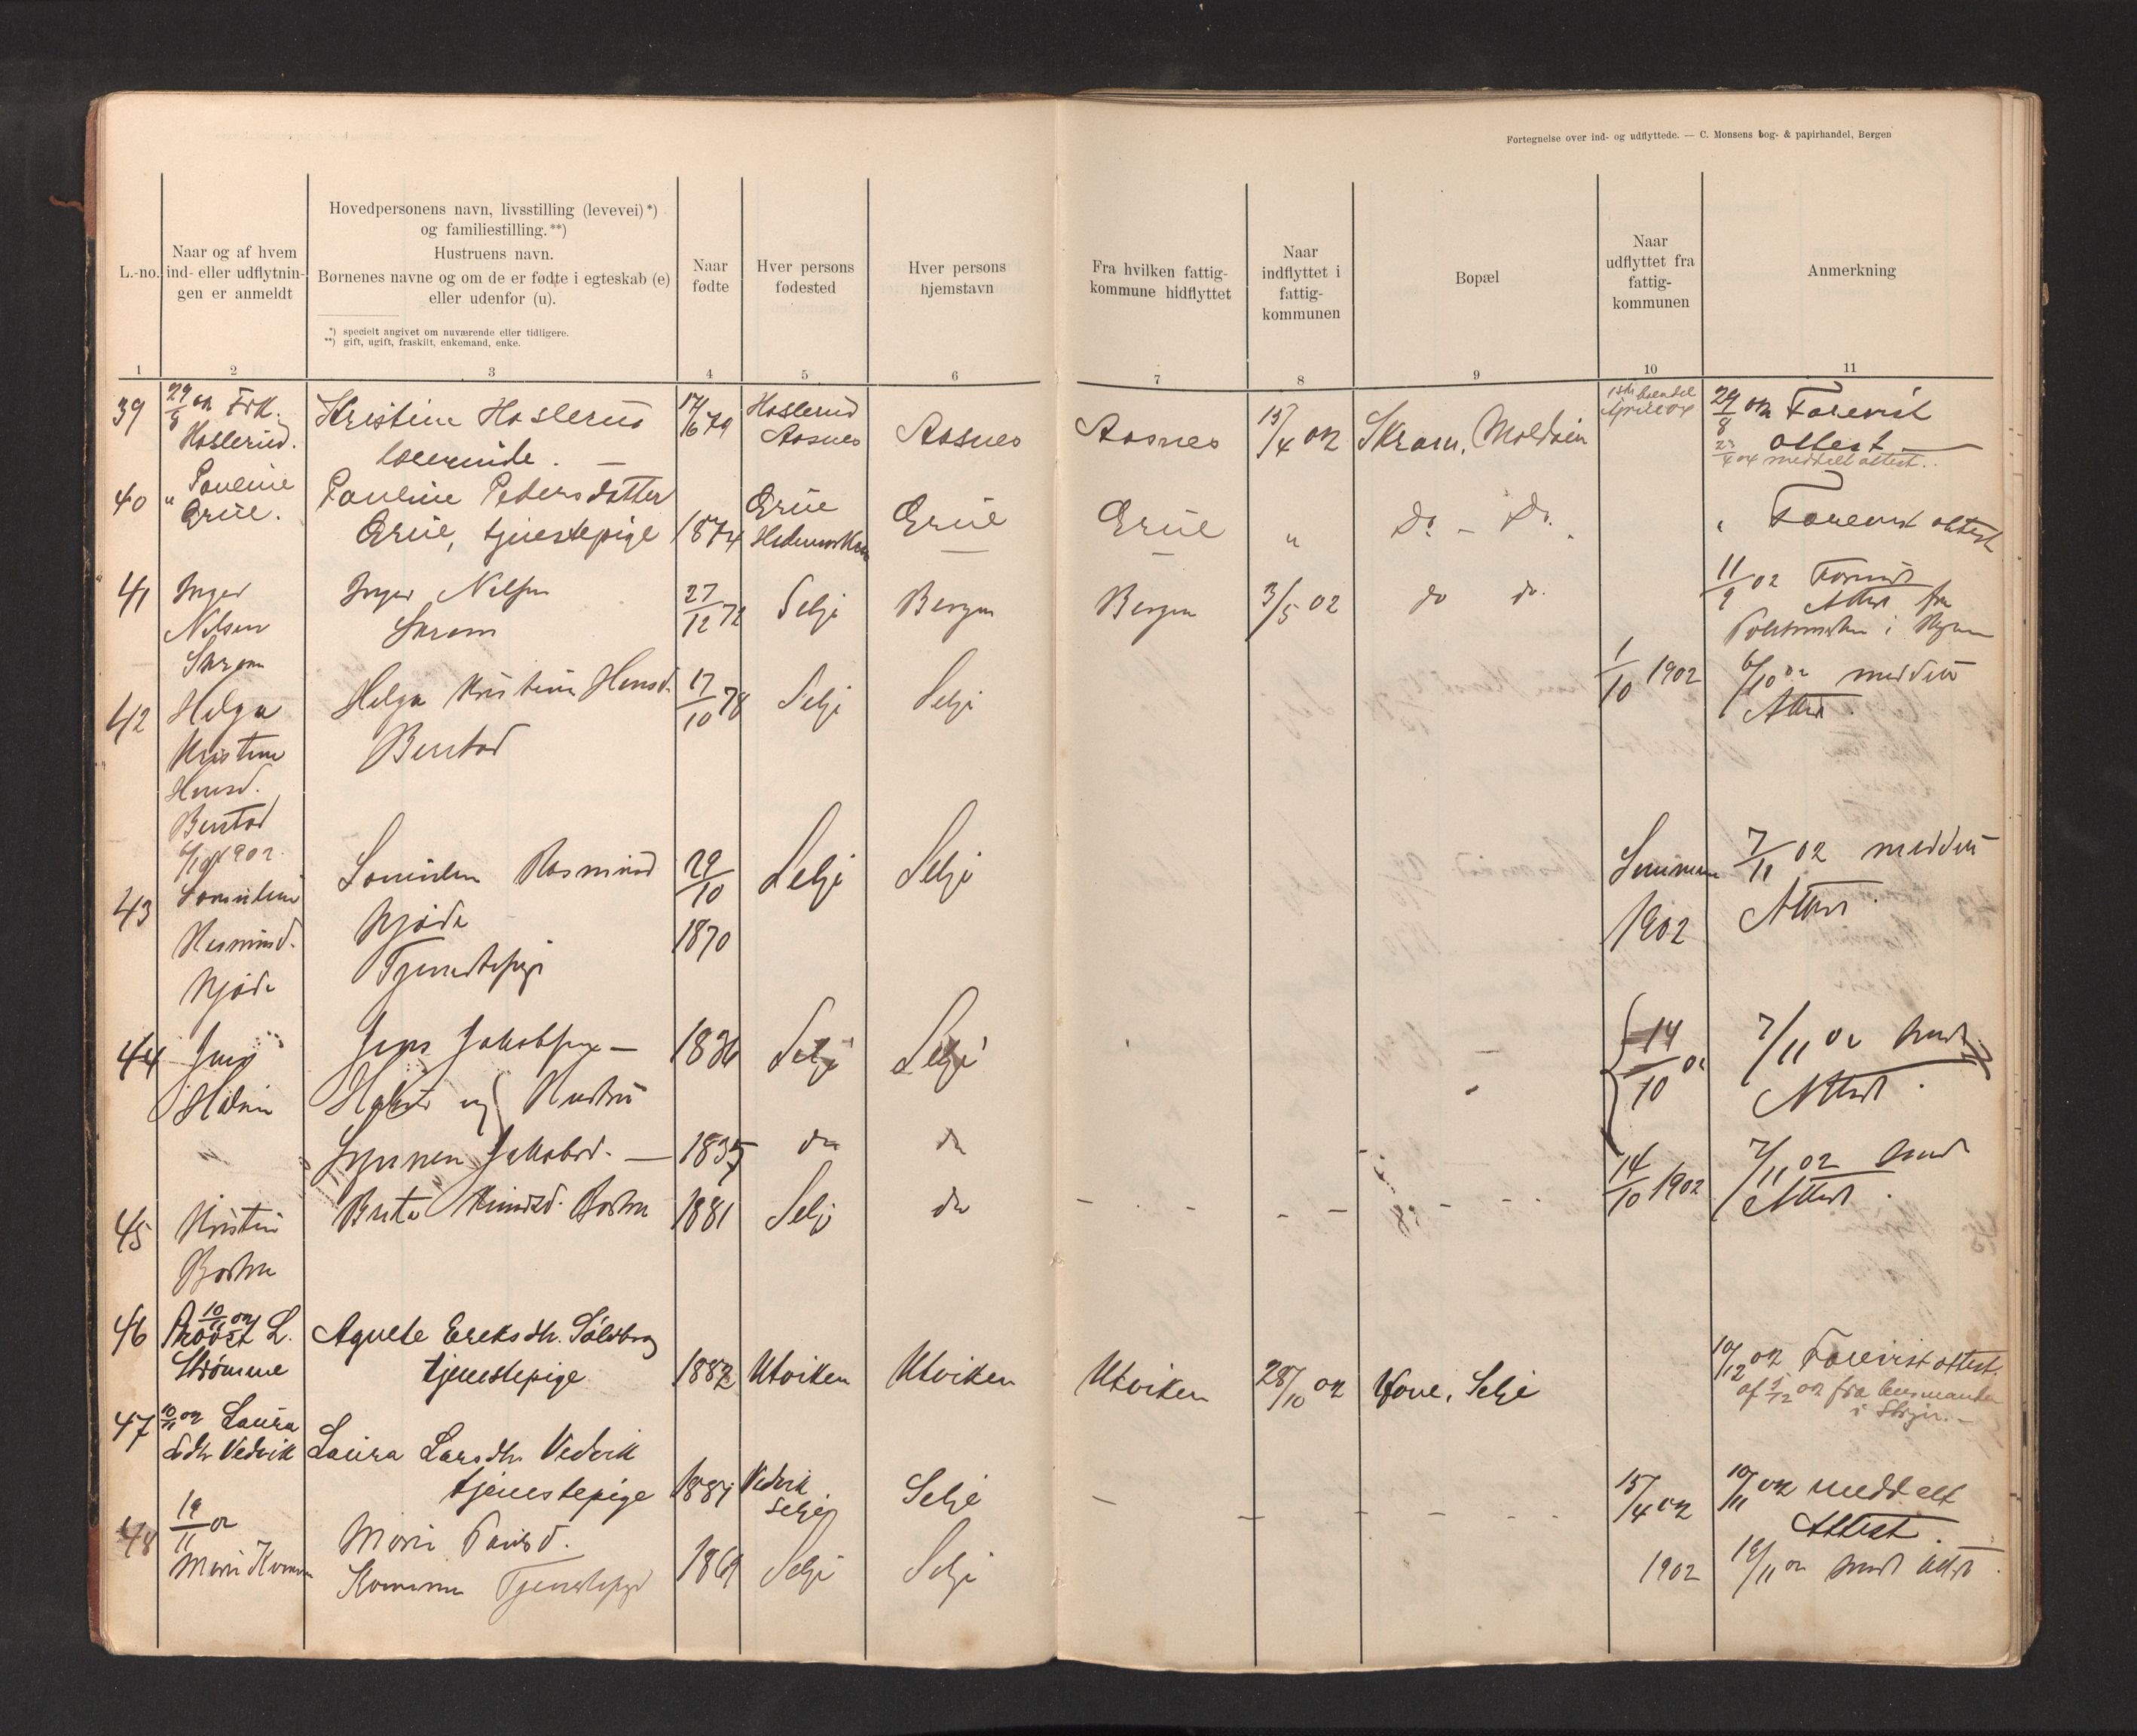 Fortegnelse over ind- og udflyttede. — C. Monsens bog- & papirhandel, Bergen
L.-no.
Naar og af hvem
ind- eller udflytnin-
gen er anmeldt
Hovedpersonens navn, livsstilling (levevei)*)
og familiestilling.**)
Hustruens navn.
Børnenes navne og om de er fødte i egteskab (e)
eller udenfor (u).
*) specielt angivet om nuværende eller tidligere.
**) gift, ugift, fraskilt, enkemand, enke.
Naar
fødte
Hver persons
fødested
Hver persons
hjemstavn
Fra hvilken fattig-
kommune hidflyttet
Naar
indflyttet i
fattig-
kommunen
Bopæl
Naar
udflyttet fra
fattig-
kommunen
Anmerkning
1 2 3 4 5 6 7 8 9 10 11
39
29/8 02 Frk.
Haslerud.
Kristine Haslerud
lærerinde. —
17/6 79
Haslerud
Aasnes
Aasnes
Aasnes
15/4 02
Skram, Moldøen
29/8 02 Forevist
attest —
meddelt attest.
40
" Pauline
Grue.
Pauline Pedersdatter
Grue, tjenestepige
1874
Grue
Hedemarken
Grue
Grue
"
Do - Do.
" Forevist attest
41
Inger
Nilsen
Skram
Inger Nilsen
Skram
27/12 72
Selje
Bergen
Bergen
3/5 02
do do.
11/9 02 Forevist
Attest fra
i Bergen
42
Helga
Kristine
Hansd.
Berstad
6/10 1902.
Helga Kristine Hansd.
Berstad
17/10 78
Selje
Selje
1/10 1902
6/10 02 meddelt
Attest.
43
Rasmusd.
Lovise Rasmusd
Tjenestepige
29/10
1870
Selje
Selje
Sommeren
1902
7/11 02 meddelt
Attest.
44
Jens
Jens Jakobsen —
og Hustru
1836
Selje
Selje
14/10 02
7/11 02 Medd.
Attest.
Synneva Jakobsd. —
1835
do
do
45
Kristen
Brita
1881
Selje
do
14/10 1902
7/11 02 Medd
Attest.
46
10/11 02
Provst L.
Strømme
Agnete Eriksdtr. Solvberg
tjenestepige
1882
Utviken
Utviken
Utviken
28/10 02
Hove, Selje
10/12 02 Forevist attest
af 5/12 02 fra lensmanden
i Stryn. —
47
10/11 02 Laura
Lsdtr Vedvik
Laura Larsdtr. Vedvik
tjenestepige
1881
Vedvik
Selje
Selje
15/4 02
10/11 02 meddelt
Attest.
48
19/11 02
Mari
Mari Paulsd.
Tjenestepige
1869
Selje
Selje
1902
19/11 02 Medd Attest